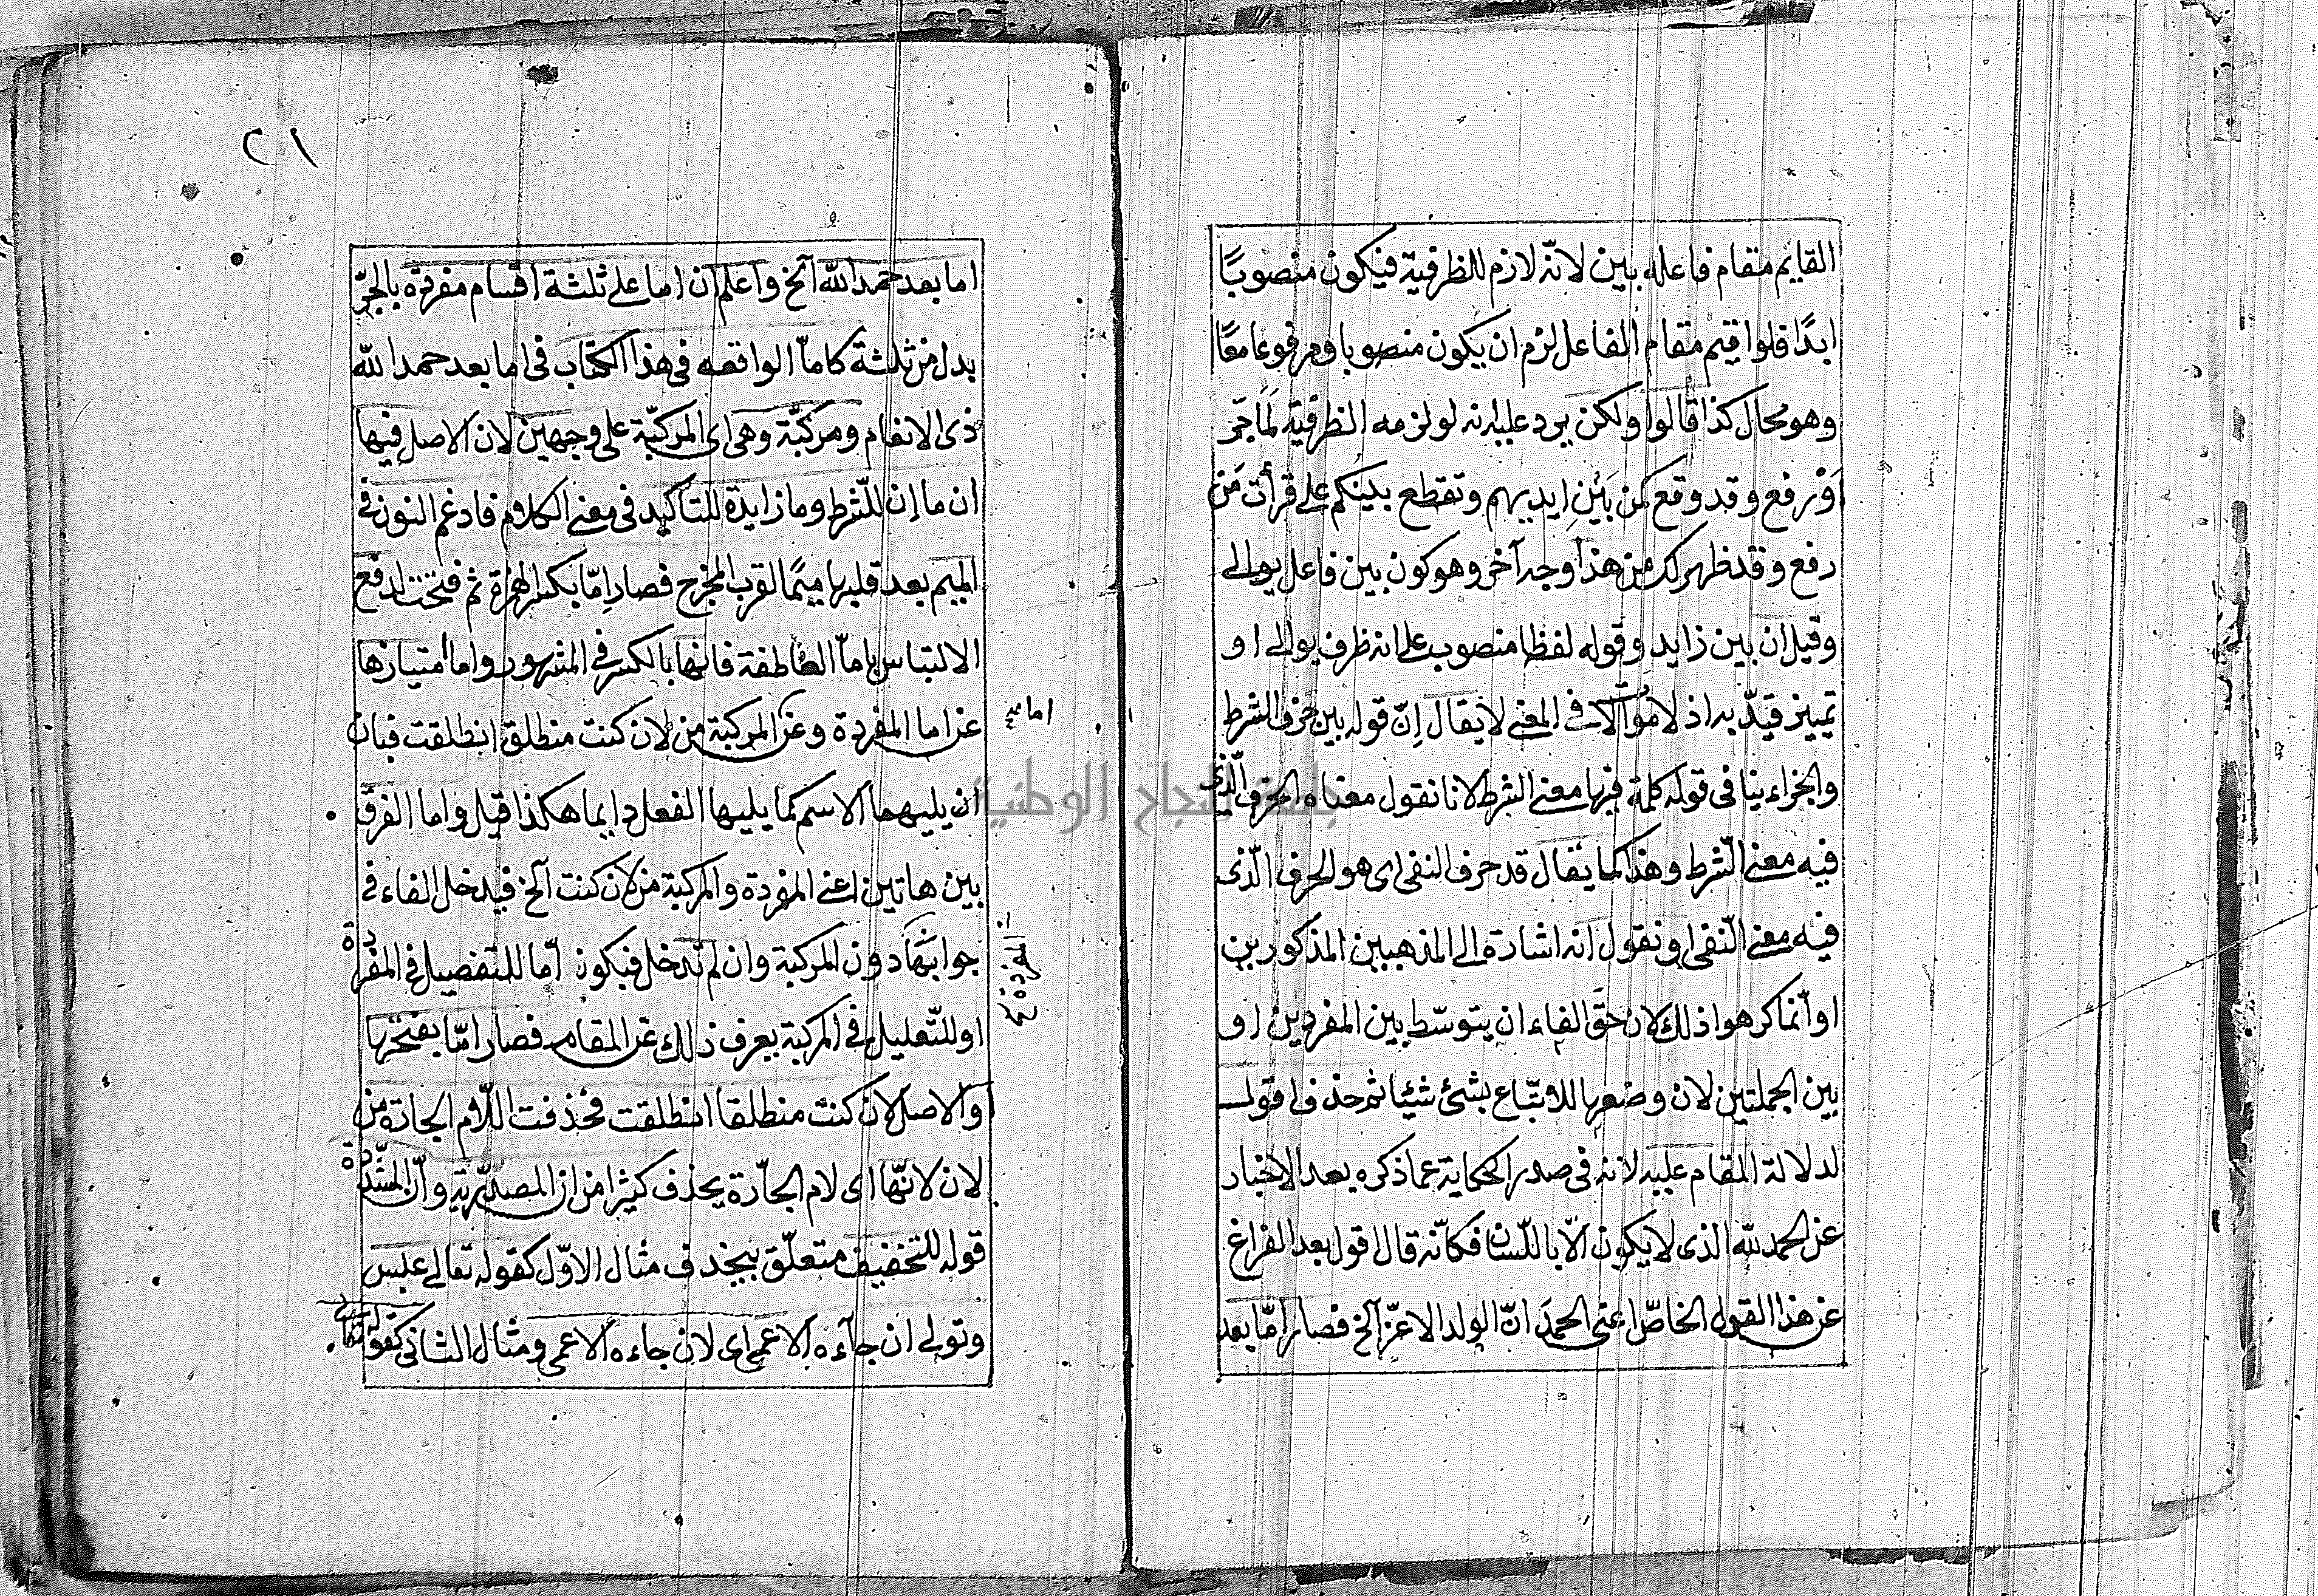 القايم مقام فاعله بين لانه لازم للظرفية فيكون منصوبًا
ابدًا فلو اقيم مقام الفاعل لزم ان يكون منصوبا ومرفوعا معًا
وهو محال كذا قالوا ولكن يرد عليه انه لو لزمه الظرفية لَمَا جَر
اَوْ رفع وقد وقع مِن بَيْنِ ايديهم وتقطع بينكم على قرأت مَن
رفع وقد ظهر لك من هذا وجه آخر وهو كون بين فاعل يوالى
وقيل ان بين زايد وقوله لفظا منصوب على انه ظرف يوالى او
تمييز قيّد به اذ لا موالات فى المعنى لا يقال اِنّ قوله بين حرف الشرط
والجزاء ينافى قوله كلمة فيها معنى الشرط لانا نقول معناه الحرف الّذى
فيه معنى الشرط وهذا كما يقال قد حرف النفى اى هو الحرف الّذى
فيه معنى النّفى او نقول انه اشارة الى المذهبين المذكورين
او انّما كرهوا ذلك لان حَقّ الفاء ان يتوسّط بين المفردين او
بين الجملتين لان وضعها للاتبّاع بشئ شيئا ثم حذف اقول
لدلالة المقام عليه لانه فى صدر الحكاية عما ذكره بعد الاخبار
عن الحمد لله الذى لا يكون الّا باللّسان فكانّه قال اقول بعد الفراغ
عن هذا القول الخاصّ اعنى الحمدَ انّ الولد الاعزّ آلخ فصار امّا بعد
٢١
اما بعد حمد الله آلخ واعلم ان اما على ثلثة اقسام مفردة بالجرّ
بدل من ثلثة كامّا الواقعه فى هذا الكتاب فى اما بعد حمد الله
ذى الانعام ومركبّة وهى اى المركبّة على وجهين لان الاصل فيها
ان ما اِن للشّرط وما زايدة للتأكيد فى معنى الكلام فادغم النون فى
الميم بعد قلبها ميمًا لقرب المخرج فصار اِمّا بكسر الهمزة ثم فتحت لدفع
الالتباس باِمّا العاطفة فانها بالكسر فى المشهور واما امتيازها
عن اما المفردة وعن المركبة من لان كنت منطلق انطلقت فبان
ان يليهما الاسم كما يليها الفعل دايما هكذا قيل واما الفرق
بين هاتين اعنى المفردة والمركبة من لان كنت آلخ فيدخل الفاء فى
جوابها دون المركبة وان لم تدخل فيكون امّا للتفصيل فى المفردة
او للتّعليل فى المركبة يعرف ذلك عن المقام فصار امّا بفتحها
والاصل لان كنت منطلقا انطلقت فحذفت اللّام الجارة من
لان لانّها اى لام الجارّة يحذف كثيرا من ان المصدرية وانّ المشدّدة
قوله للتخفيف متعلّق بيحذف مثال الاوّل كقوله تعالى عبس
وتولى ان جآءه الاعمى اى لان جاءه الاعمى ومثال الثانى كقوله تعالى
المفردة
جامعة النجاح الوطنية